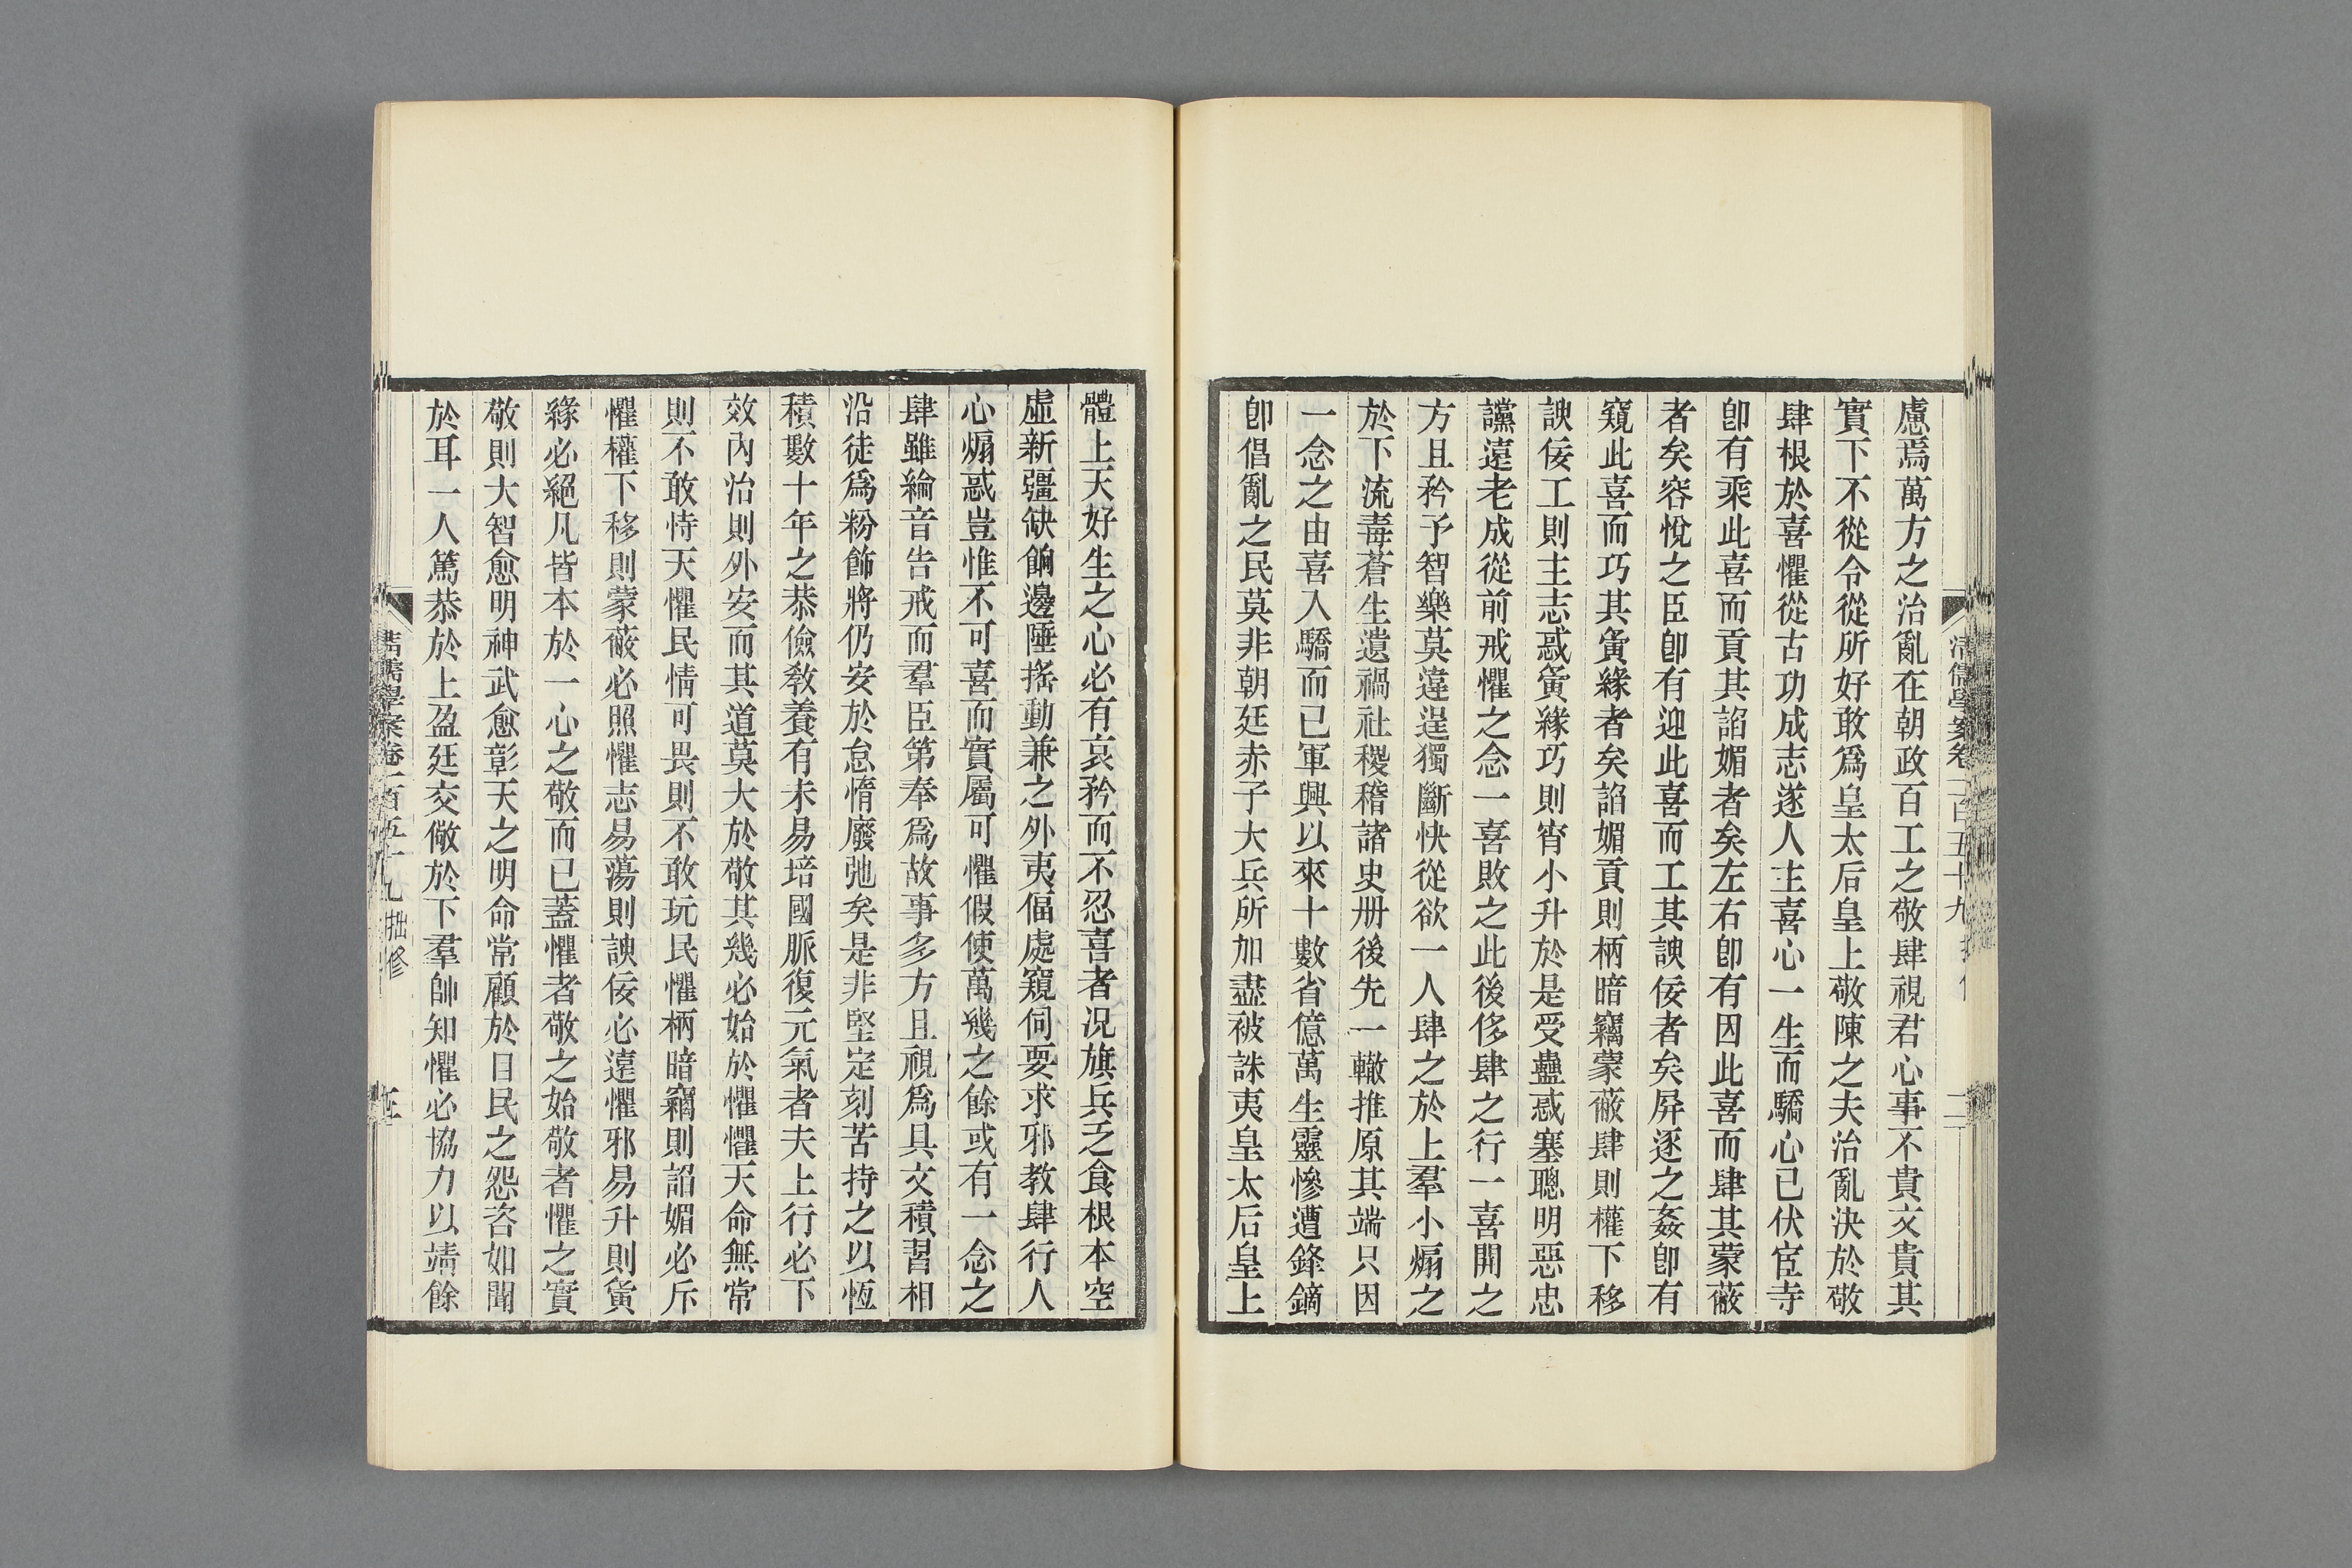 慮焉萬方之治亂在朝政百工之敬肆視君心事不貴文貴其
實下不從令從所好敢爲皇太后皇上敬陳之夫治亂決於敬
肆敬肆根於喜懼從古功成志遂人主喜心一生而驕心已伏宦寺
卽有乘此喜而貢其諂媚者矣左右卽有因此喜而肆其蒙蔽
者矣容悅之臣卽有迎此喜而工其諛佞者矣屏逐之姦卽有
窺此喜而巧其夤緣者矣諂媚貢則柄暗竊蒙蔽肆則權下移
諛佞工則主志惑夤緣巧則宵小升於是受蠱惑塞聰明惡忠
讜遠老成從前戒懼之念一喜敗之此後侈肆之行一喜開之
方且矜予智樂莫違逞獨斷快從欲一人肆之於上羣小煽之
於下流毒蒼生遺禍社稷稽諸史册後先一轍推原其端只因
一念之由喜入驕而已軍興以來十數省億萬生靈慘遭鋒鏑
卽倡亂之民莫非朝廷赤子大兵所加盡被誅夷皇太后皇上
體上天好生之心必有哀矜而不忍喜者况旗兵乏食根本空
虛新疆缺餉邊陲搖動兼之外夷偪處窺伺要求邪教肆行人
心煽惑豈惟不可喜而實屬可懼假使萬幾之餘或有一念之
肆雖綸音告戒而羣臣第奉爲故事多方且視爲具文積習相
沿徒爲粉飾將仍安於怠惰廢弛矣是非堅定刻苦持之以恆
積數十年之恭儉敎養有未易培國脈復元氣者夫上行必下
效內治則外安而其道莫大於敬其幾必始於懼懼天命無常
則不敢恃天懼民情可畏則不敢玩民懼柄暗竊則諂媚必斥
懼權下移則蒙蔽必照懼志易蕩則諛佞必遠懼邪易升則夤
緣必絕凡皆本於一心之敬而已蓋懼者敬之始敬者懼之實
敬則大智愈明神武愈彰天之明命常顧於目民之怨咨如聞
於耳一人篤恭於上盈廷交儆於下羣帥知懼必協力以靖餘
清儒學案卷一百五十九 拙修